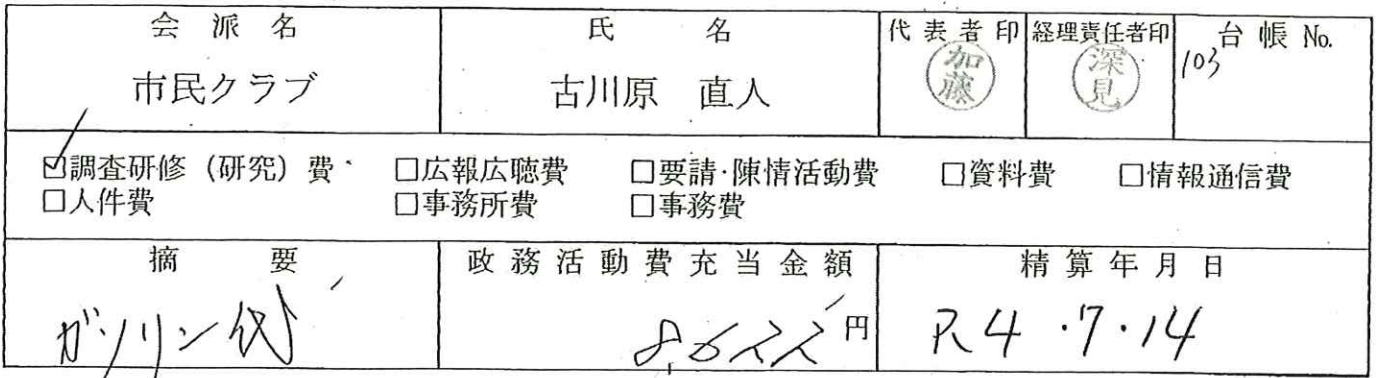 会派名 氏名 代表者印 経理責任者印 台帳 No.
市民クラブ 古川原 直人 加藤 深見 103
☑調査研修（研究）費 □広報広聴費 □要請・陳情活動費 □資料費 □情報通信費
□人件費 □事務所費 □事務費
摘要 政務活動費充当金額 精算年月日
ガソリン代 8,622円 R4.7.14